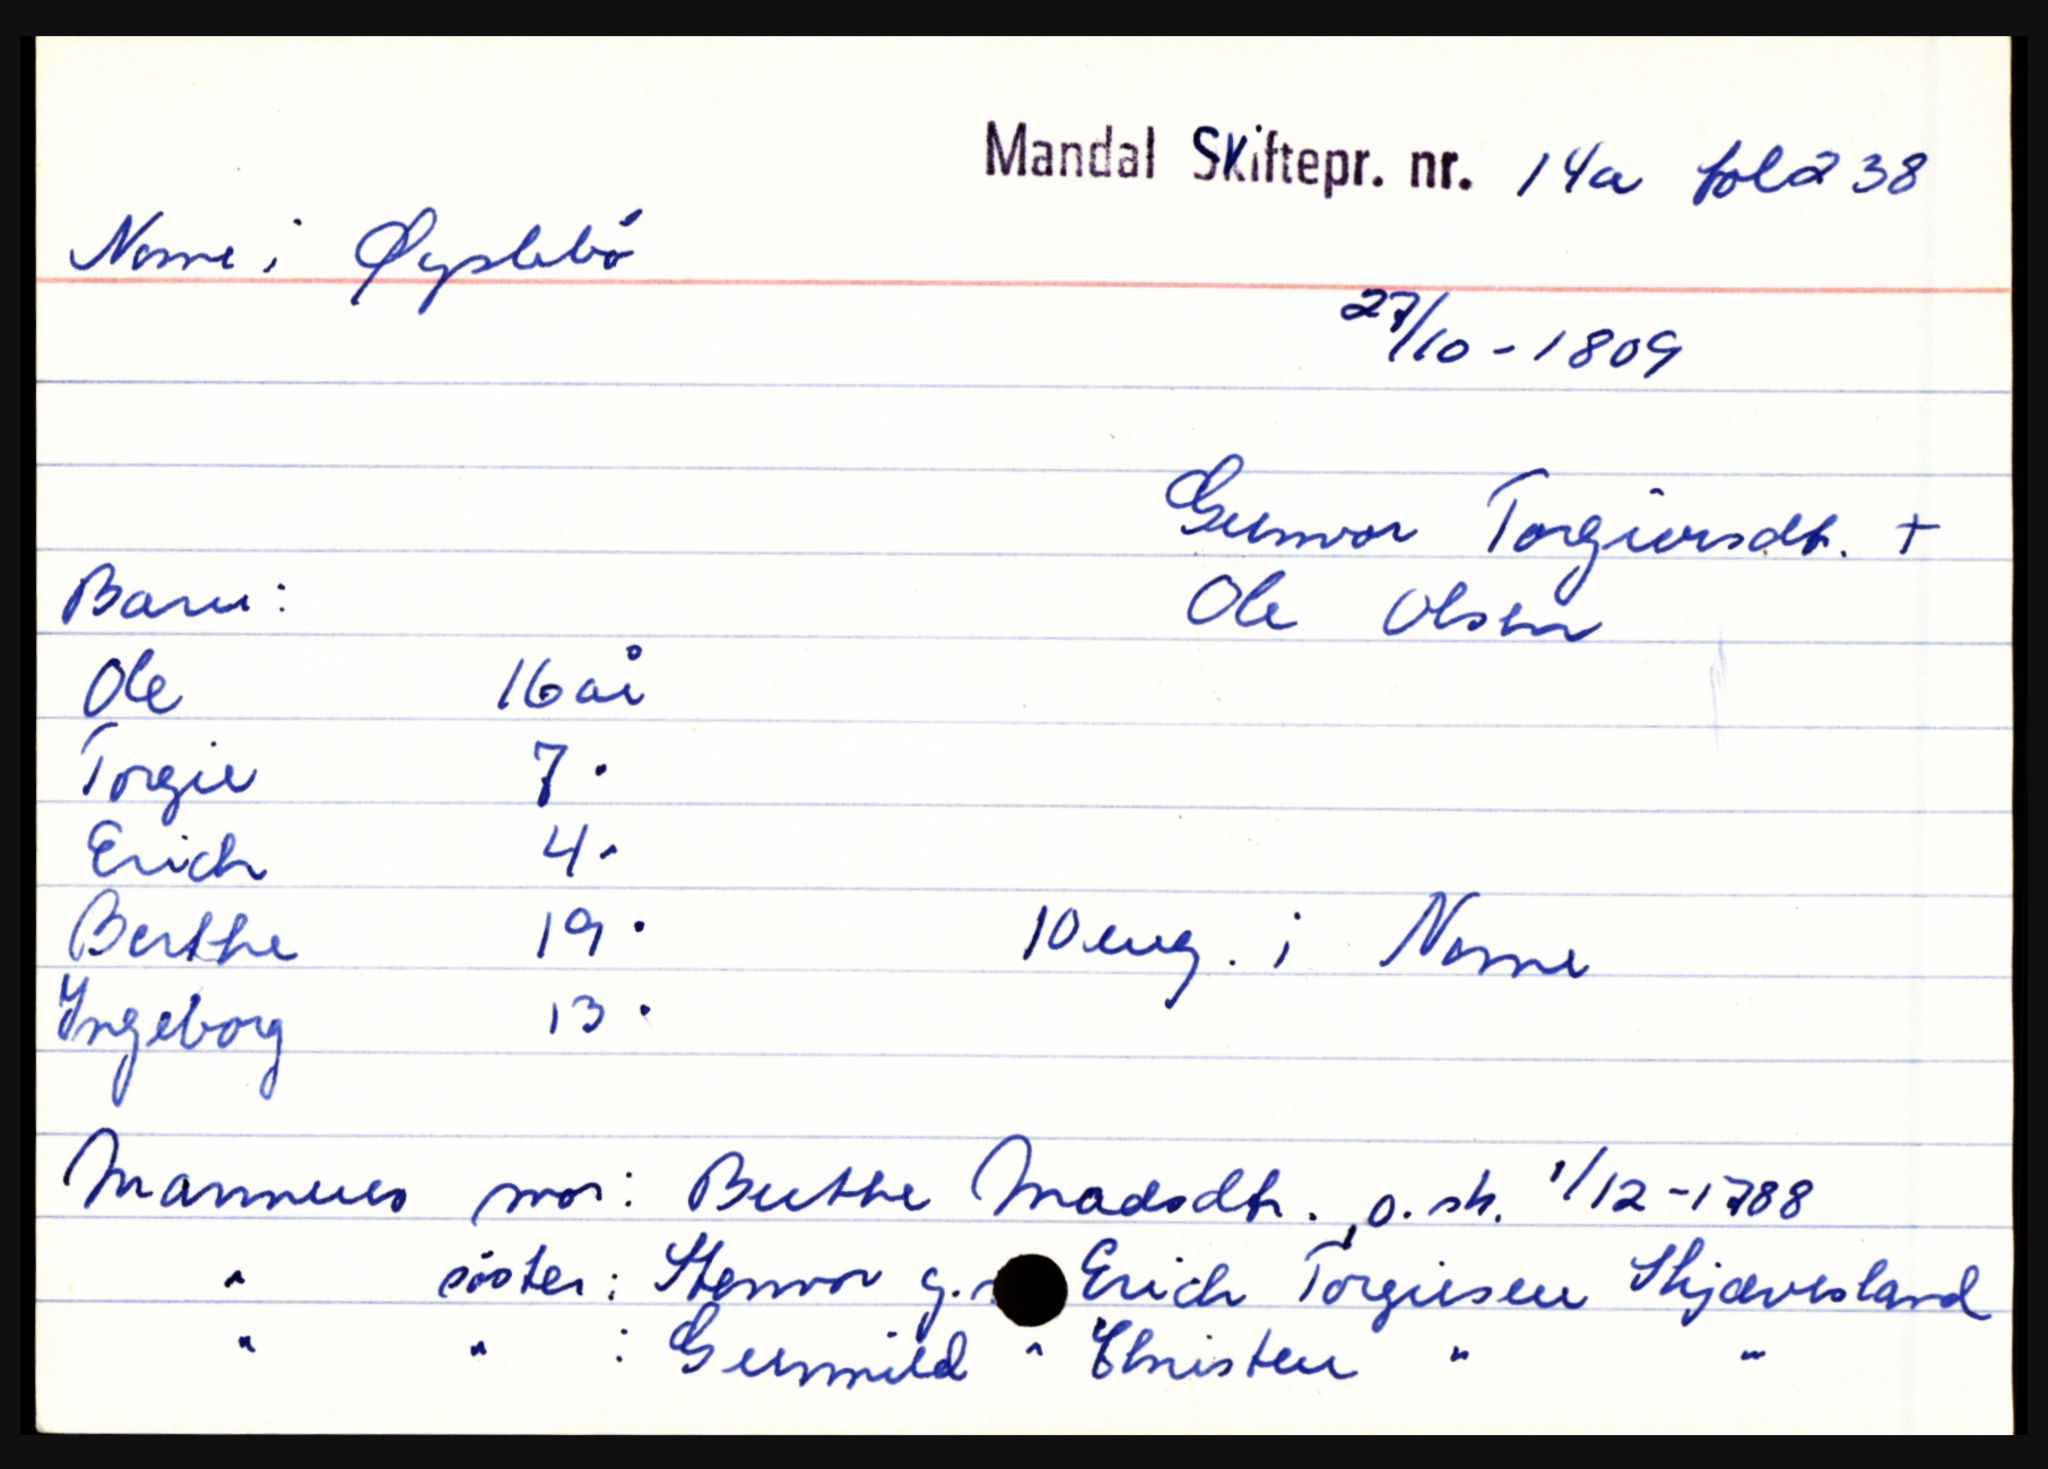 Mandal Skiftepr. nr. 14a fol 238
Nome i Øyslebö
27/10 - 1809
Gunvor Torgiersdt. +
Barn:
Ole Olsen
Ole 16 år
Torgie 7 "
Erich 4 "
Berthe 19 "
10 eng. i Nome
Ingeborg 13 "
Mannens mor: Berthe Madsdt. , o. sk. 1/12 - 1788
" söster: Stenvor g. Erich Torgiesen Skjævesland
" " : Gunnild " Christen " "